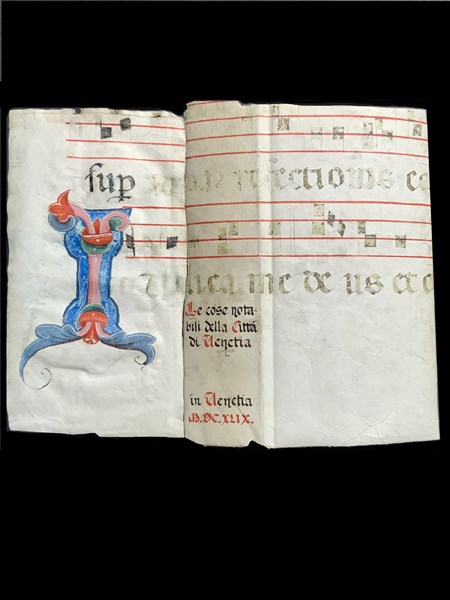 sup refectionis
Iudica me de us et
Le cose nota-
bili della Città
di Venetia
in Venetia
M.DC.XLIX.